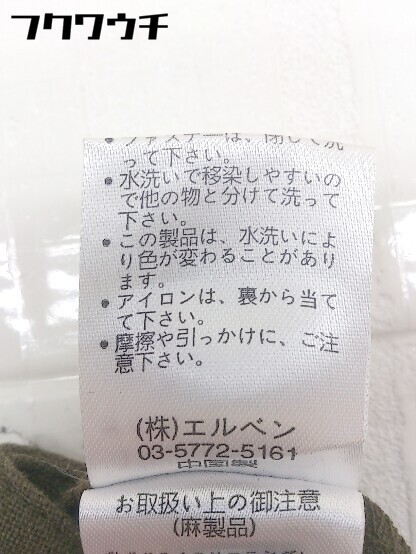 フクワウチ
・ファスナーは、閉じて洗
って下さい。
・水洗いで移染しやすいの
で他の物と分けて洗って
下さい。
・この製品は、水洗いによ
り色が変わることがあり
ます。
・アイロンは、裏から当て
て下さい。
・摩擦や引っかけに、ご注
意下さい。
(株)エルベン
03-5772-5161
中国製
お取扱い上の御注意
(麻製品)